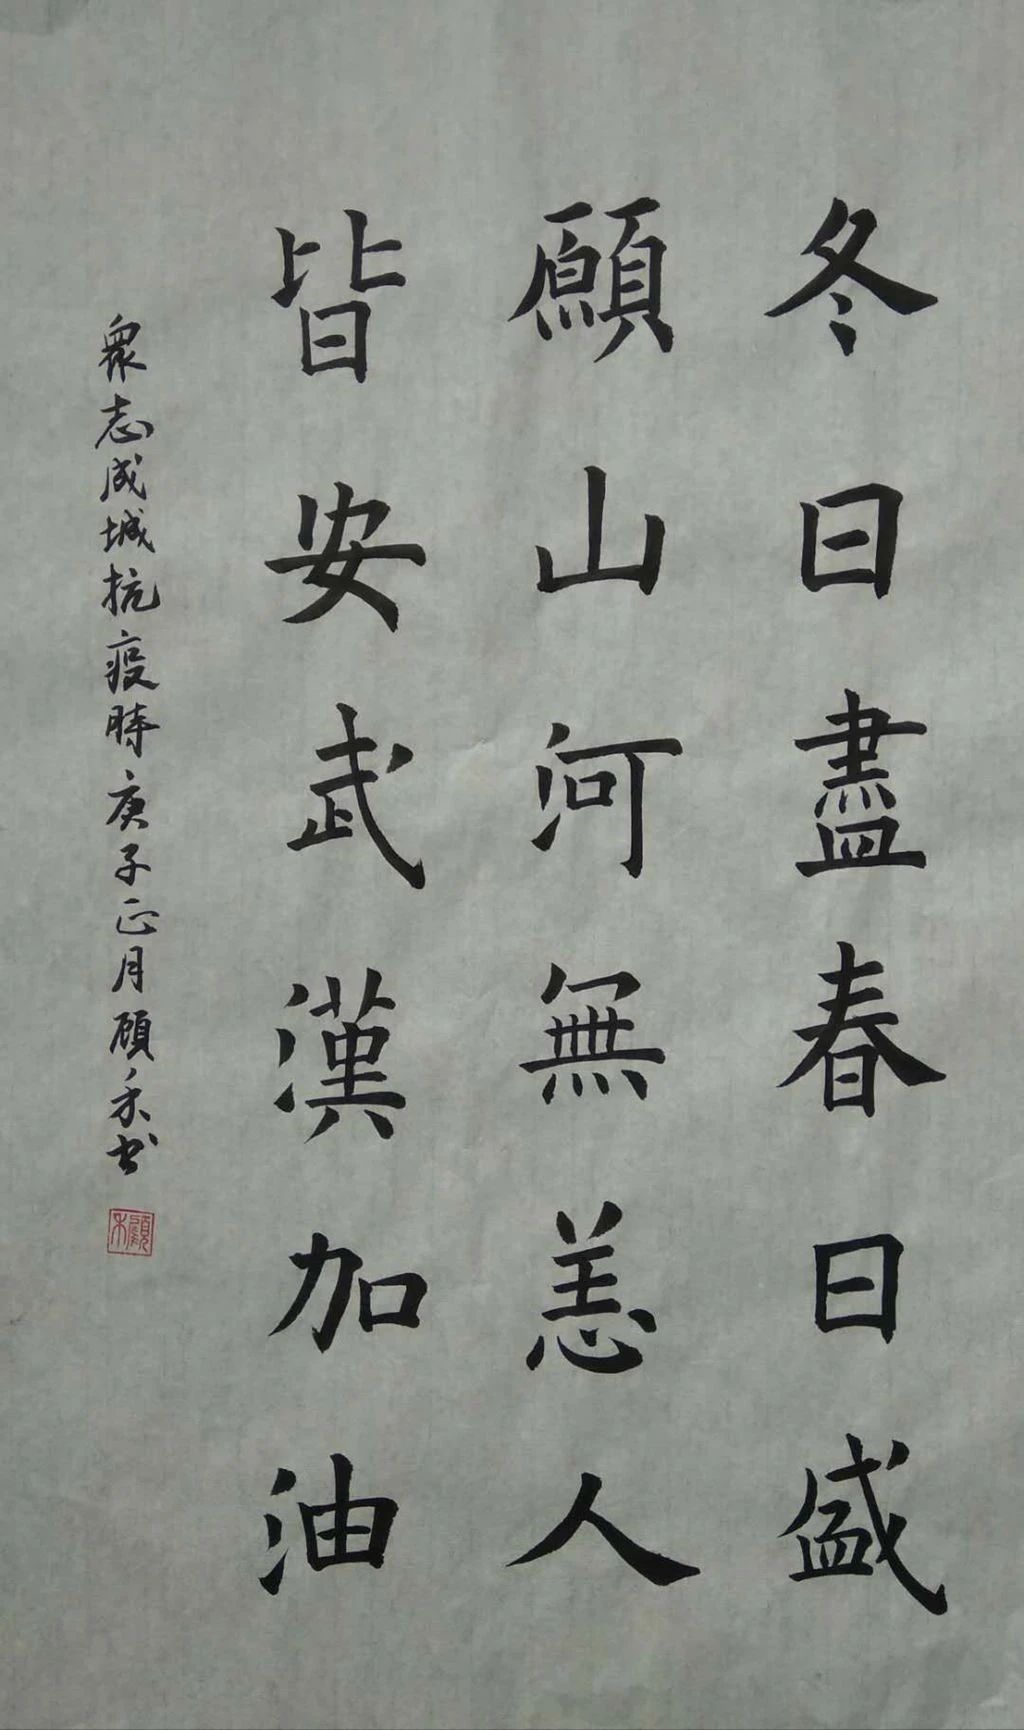 冬日盡春日盛
願山河無恙人
皆安武漢加油
眾志成城抗疫時庚子正月顧禾书
顧禾